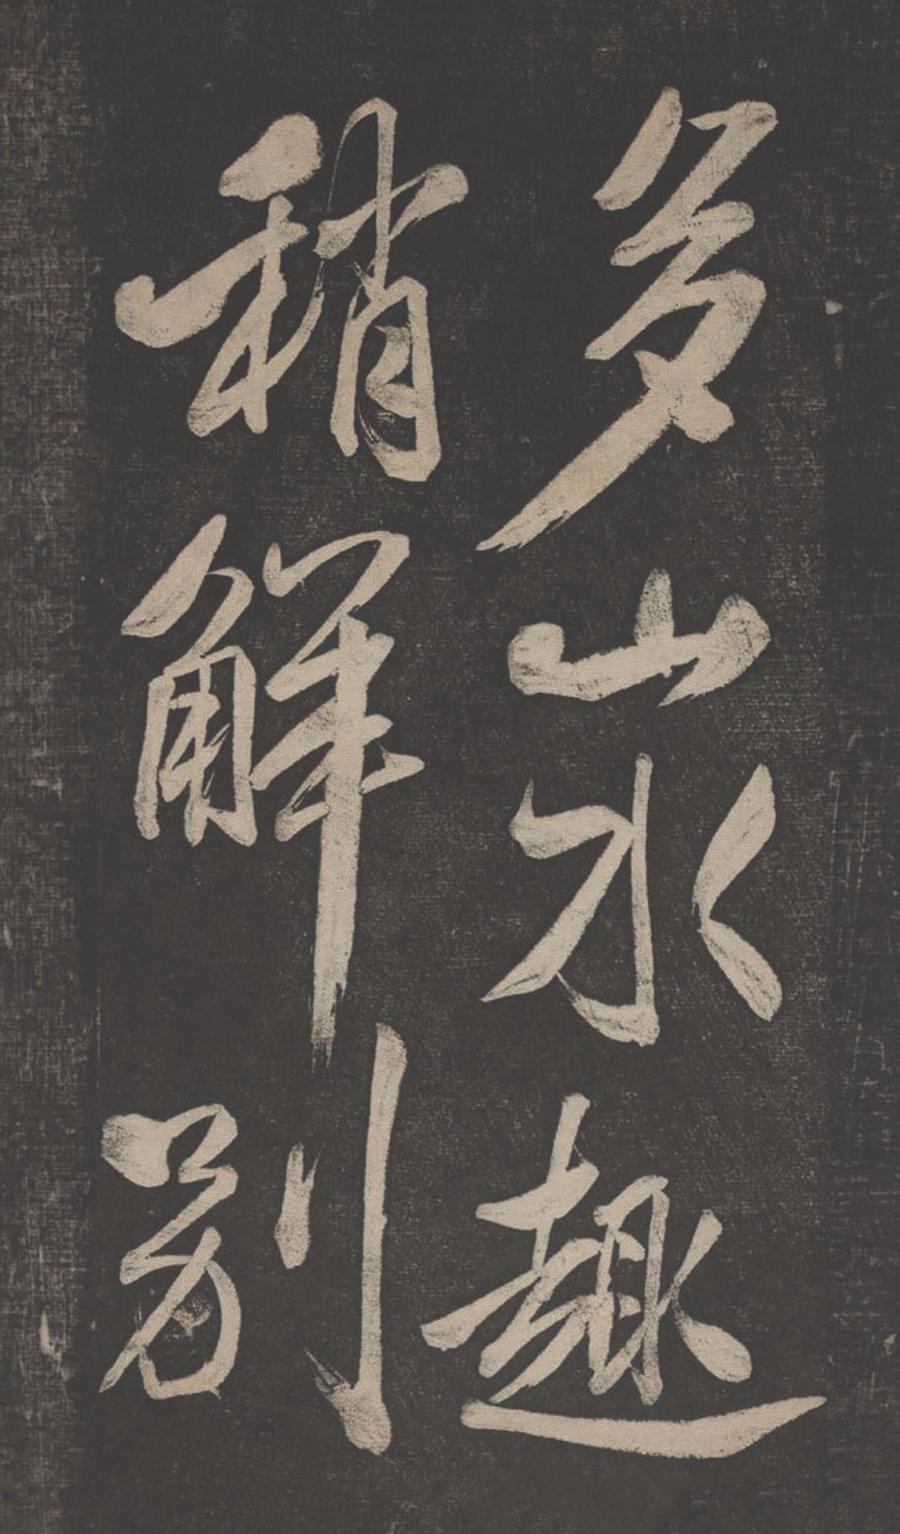 多山水趣
稍解別